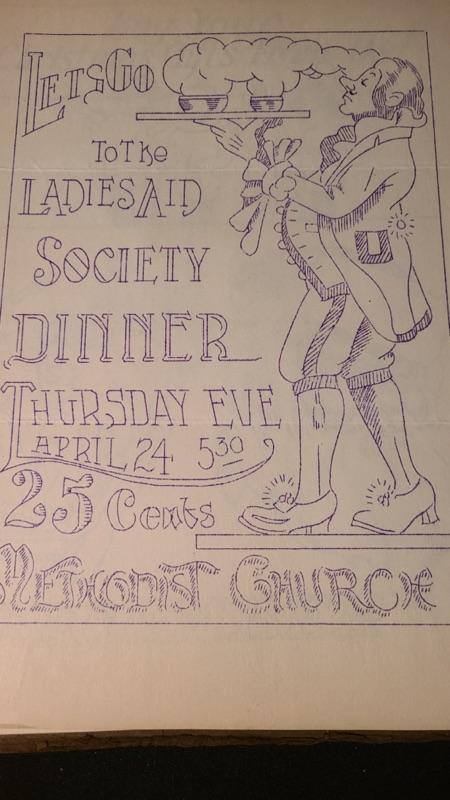 LETS GO
To The
LADIES AID
SOCIETY
DINNER
THURSDAY EVE
APRIL 24 5 30
25 Cents
METHODIST CHURCH